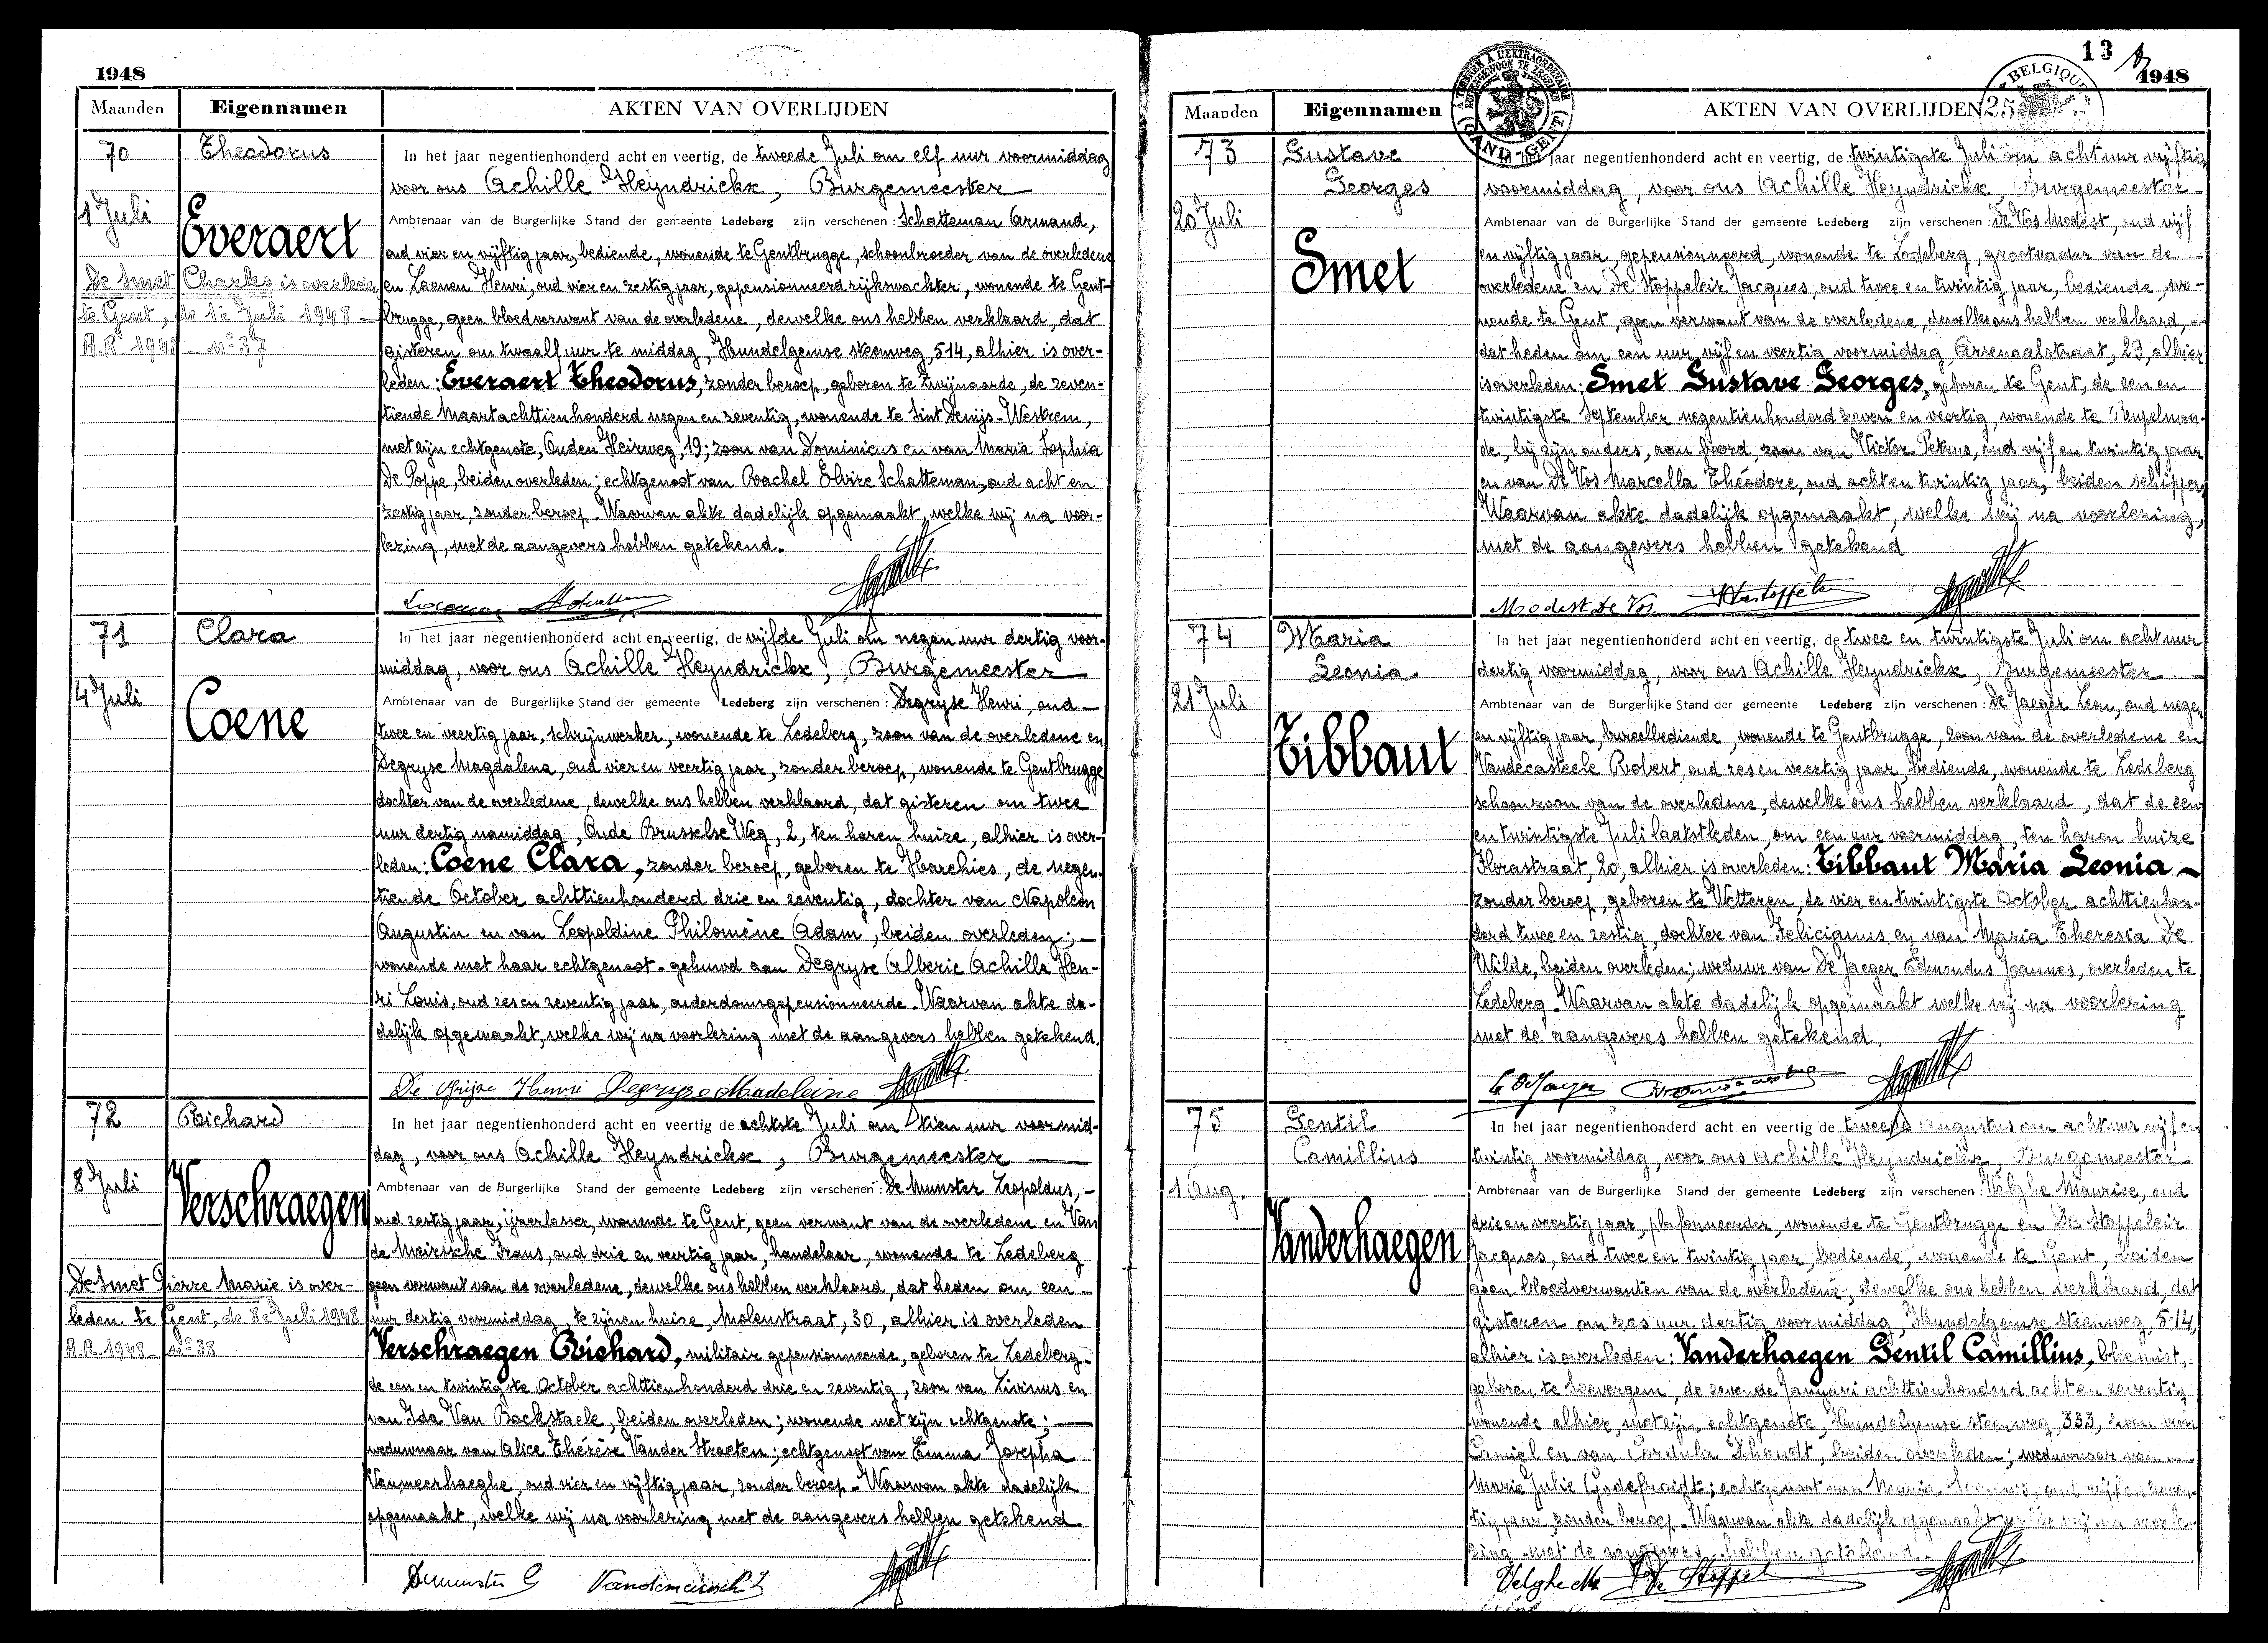 1948
Maanden Eigennamen AKTEN VAN OVERLIJDEN
70 Theodorus
1 Juli
Everaert
De Smet Charles is overleden
te Gent, de 1e Juli 1948 —
A.R. 1948 — nº 37
In het jaar negentienhonderd acht en veertig, de tweede Juli om elf uur voormiddag
voor ons Achille Heyndrickx, Burgemeester
Ambtenaar van de Burgerlijke Stand der gemeente Ledeberg zijn verschenen: Schatteman Armand,
oud vier en vijftig jaar, bediende, wonende te Gentbrugge, schoonbroeder van de overledene
en Laenen Henri, oud vier en zestig jaar, gepensionneerd rijkswachter, wonende te Gent-
brugge, geen bloedverwant van de overledene, dewelke ons hebben verklaard, dat
gisteren om twaalf uur te middag, Hundelgemse steenweg, 514, alhier is over-
leden: Everaert Theodorus, zonder beroep, geboren te Zwijnaarde, de zeven-
tiende Maart achttienhonderd negen en zeventig, wonende te Sint Denijs-Westrem,
met zijn echtgenote, Ouden Heirweg, 19; zoon van Dominicus en van Maria Sophia
De Poppe, beiden overleden; echtgenoot van Rachel Elvire Schatteman, oud acht en
zestig jaar, zonder beroep. Waarvan akte dadelijk opgemaakt, welke wij na voor-
lezing, met de aangevers hebben getekend.
71 Clara
4 Juli
Coene
In het jaar negentienhonderd acht en veertig, de vijfde Juli om negen uur dertig voor-
middag, voor ons Achille Heyndrickx, Burgemeester
Ambtenaar van de Burgerlijke Stand der gemeente Ledeberg zijn verschenen: Degryse Henri, oud —
twee en veertig jaar, schrijnwerker, wonende te Ledeberg, zoon van de overledene en
Degryse Magdalena, oud vier en veertig jaar, zonder beroep, wonende te Gentbrugge
dochter van de overledene, dewelke ons hebben verklaard, dat gisteren om twee
uur dertig namiddag, Oude Brusselse Weg, 2, ten haren huize, alhier is over-
leden: Coene Clara, zonder beroep, geboren te Harchies, de negen-
tiende October achttienhonderd drie en zeventig, dochter van Napoléon
Augustin en van Leopoldine Philomène Adam, beiden overleden; —
wonende met haar echtgenoot. gehuwd aan Degryse Alberic Achille Hen-
ri Louis, oud zes en zeventig jaar, ouderdomsgepensionneerde. Waarvan akte da-
delijk opgemaakt, welke wij na voorlezing met de aangevers hebben getekend.
De Grijse Henri Degryse Madeleine
72 Richard
8 Juli
Verschraegen
De Smet Pierre Marie is over-
leden te Gent, de 8e Juli 1948
A.R. 1948 — nº 38
In het jaar negentienhonderd acht en veertig de achtste Juli om tien uur voormid-
dag, voor ons Achille Heyndrickx, Burgemeester
Ambtenaar van de Burgerlijke Stand der gemeente Ledeberg zijn verschenen: De Munster Leopoldus, —
oud zestig jaar, ijzerlasser, wonende te Gent, geen verwant van de overledene en Van
de Meirssche Frans, oud drie en veertig jaar, handelaar, wonende te Ledeberg
geen verwant van de overledene, dewelke ons hebben verklaard, dat heden om een —
uur dertig voormiddag, te zijnen huize, Molenstraat, 30, alhier is overleden
Verschraegen Richard, militair gepensionneerde, geboren te Ledeberg
de een en twintigste October achttienhonderd drie en zeventig, zoon van Livinus en
van Ida Van Bockstaele, beiden overleden; wonende met zijn echtgenote; —
weduwnaar van Alice Thérèse Vander Straeten; echtgenoot van Emma Josepha
Vanmeerhaeghe, oud vier en vijftig jaar, zonder beroep. Waarvan akte dadelijk
opgemaakt, welke wij na voorlezing met de aangevers hebben getekend
13
1948
BELGIQUE
25
GAND GENT
Maanden Eigennamen AKTEN VAN OVERLIJDEN
73 Gustave
Georges
20 Juli
Smet
jaar negentienhonderd acht en veertig, de twintigste Juli om acht uur vijftig
voormiddag, voor ons Achille Heyndrickx, Burgemeester
Ambtenaar van de Burgerlijke Stand der gemeente Ledeberg zijn verschenen: De Vos Modest, oud vijf
en vijftig jaar, gepensionneerd, wonende te Ledeberg, grootvader van de
overledene en De Stoppeleir Jacques, oud twee en twintig jaar, bediende, wo-
nende te Gent, geen verwant van de overledene, dewelke ons hebben verklaard,
dat heden om een uur vijf en veertig voormiddag Arsenaalstraat, 23, alhier
is overleden: Smet Gustave Georges, geboren te Gent, de een en
twintigste September negentienhonderd zeven en veertig, wonende te Rupelmon-
de, bij zijn ouders, aan boord, zoon van Victor Petrus, oud vijf en twintig jaar
en van De Vos Marcella Théodore, oud acht en twintig jaar, beiden schippers
Waarvan akte dadelijk opgemaakt, welke wij na voorlezing,
met de aangevers hebben getekend
Modest De Vos
74 Maria
Leonia
21 Juli
Tibbaut
In het jaar negentienhonderd acht en veertig, de twee en twintigste Juli om acht uur
dertig voormiddag, voor ons Achille Heyndrickx, Burgemeester
Ambtenaar van de Burgerlijke Stand der gemeente Ledeberg zijn verschenen: De Jaeger Leon, oud negen
en vijftig jaar, bureelbediende, wonende te Gentbrugge, zoon van de overledene en
Vandecasteele Robert, oud zes en veertig jaar, bediende, wonende te Ledeberg
schoonzoon van de overledene, dewelke ons hebben verklaard, dat de een
en twintigste Juli laatstleden, om een uur voormiddag, ten haren huize
Florastraat, 20, alhier is overleden: Tibbaut Maria Leonia —
zonder beroep, geboren te Wetteren, de vier en twintigste October achttienhon-
derd twee en zestig, dochter van Felicianus en van Maria Theresia De
Wilde, beiden overleden; weduwe van De Jaeger Edmondus Joannes, overleden te
Ledeberg. Waarvan akte dadelijk opgemaakt welke wij na voorlezing
met de aangevers hebben getekend.
75 Gentil
Camillius
1 Aug.
Vanderhaegen
In het jaar negentienhonderd acht en veertig de tweede Augustus om acht uur vijf en
twintig voormiddag, voor ons Achille Heyndrickx, Burgemeester
Ambtenaar van de Burgerlijke Stand der gemeente Ledeberg zijn verschenen: Velghe Maurice, oud
drie en veertig jaar, plafonneerder, wonende te Gentbrugge en De Stoppeleir
Jacques, oud twee en twintig jaar, bediende, wonende te Gent, beiden
geen bloedverwanten van de overledene, dewelke ons hebben verklaard, dat
gisteren om zes uur dertig voormiddag, Hundelgemse steenweg, 514,
alhier is overleden: Vanderhaegen Gentil Camillius, bloemist,
geboren te Seevergem, de zevende Januari achttienhonderd acht en zeventig
wonende alhier, met zijn echtgenote, Hundelgemse steenweg, 333, zoon van
Camiel en van Cordula Dhondt, beiden overleden; weduwnaar van —
Marie Julie Godefroidt; echtgenoot van Maria oud vijf en zeven-
tig jaar, zonder beroep. Waarvan akte dadelijk opgemaakt welke wij na voorle-
zing met de aangevers hebben getekend.
Velghe M De Stoppel